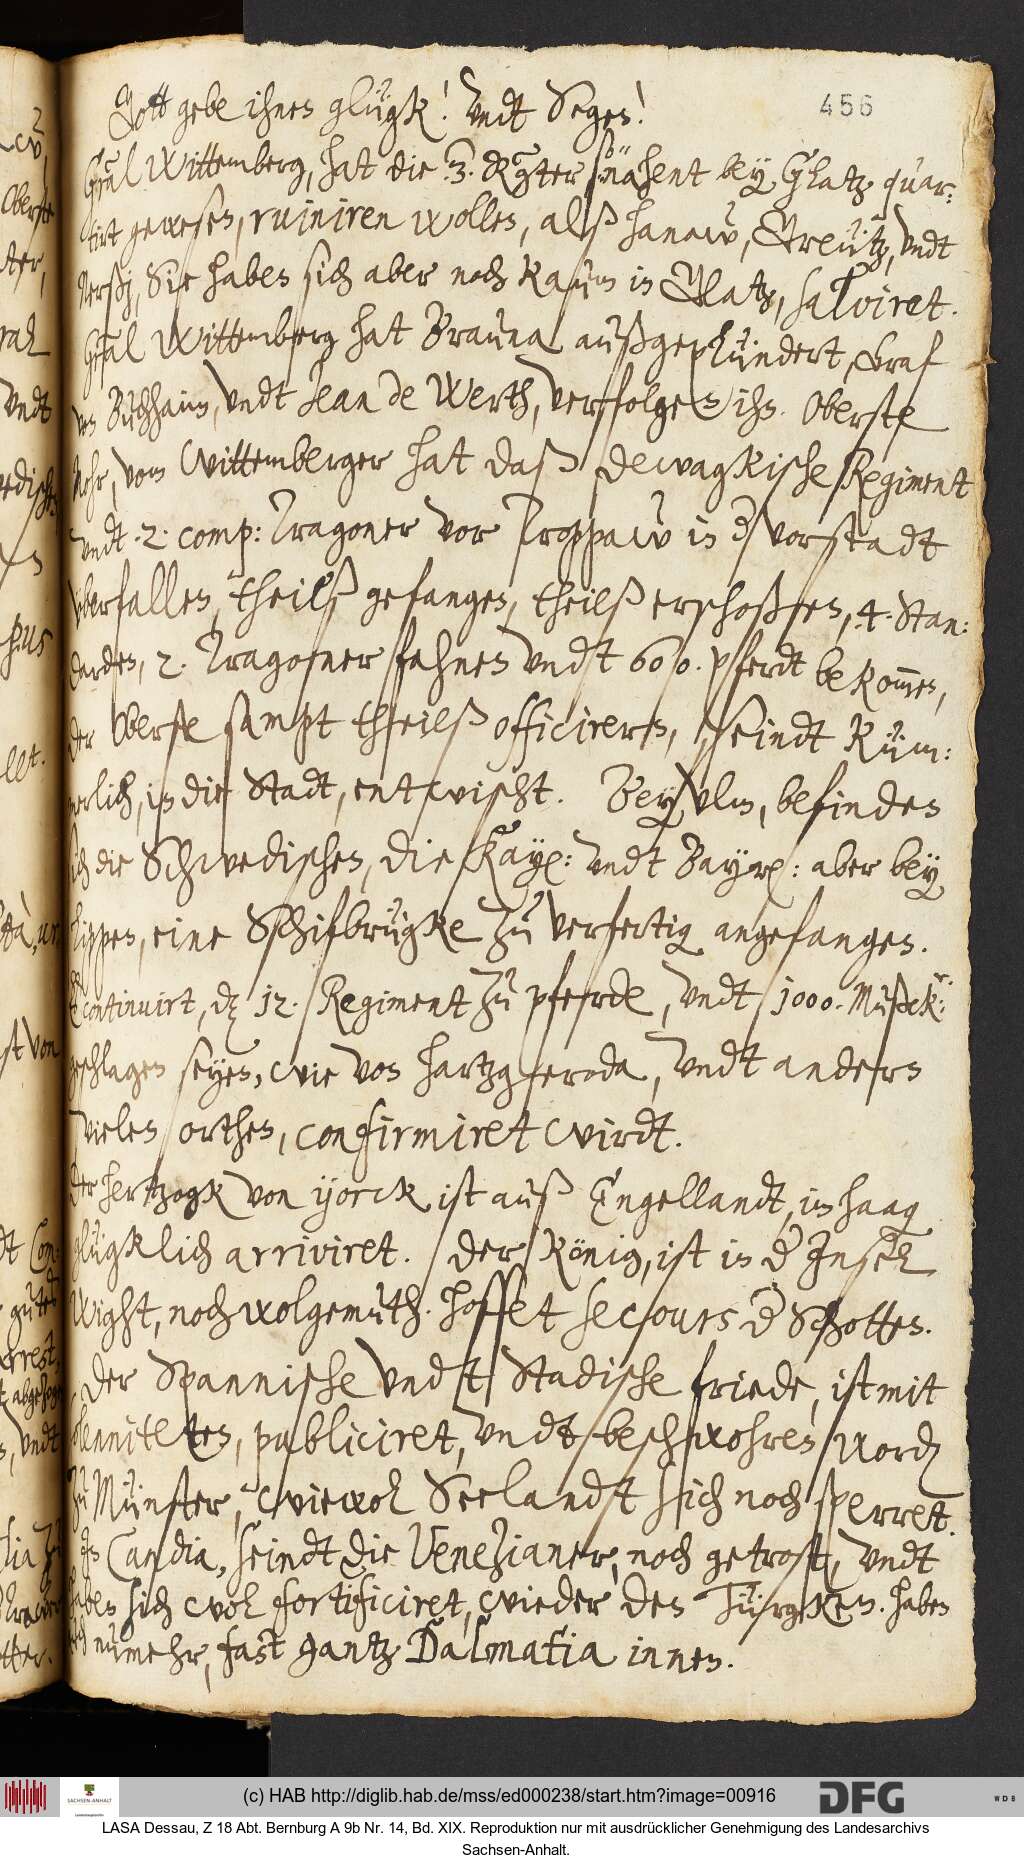 Gott gebe ihnen glügk! Undt Segen!
456
Gral Wittemberg, hat die 3. Rgter so nähent bey Glatz quar:
tirt gewesen, ruiniren wollen, alß hanaw, Creütz, undt
Nerßj, Sie haben sich aber noch kaum in Glatz, salviret.
Gral Wittemberg hat Brauna außgeplündert, Graf
von Buchhaim, undt Jean de Werth, verfolgen ihn. Oberste
Rohr, vom Wittemberger hat daß dewagkische Regiment
undt .2. comp: Dragoner vor Troppaw in d vorstadt
überfallen, theilß gefangen, theilß erschoßen, .4. Stan:
darden, 2. Dragoner fahnen undt 600. pferdt bekommen,
der Oberste sampt theilß officirern, seindt küm:
merlich, in die Stadt, entwischt. Bey Ulm, befinden
sich die Schwedischen, die Kaye: undt Bayre: aber bey
Lippen, eine Schifbrügke zu verfertig angefangen.
Es continuirt, dz 12. Regiment zu pferde, undt 1000. Mußck:
geschlagen seyen, wie von Hartzgeroda, undt andern
vielen orthen, confirmiret wirdt.
Der hertzogk von yorck ist auß Engellandt, im haag
glügklich arriviret. Der König, ist in d Insel
Wight, noch wolgemuth. Hoffet secours d Schotten.
Der Spannische undt Stadische friede, ist mit
solenniteten, publiciret, undt beschwohren word
zu Münster, wiewol Seelandt sich noch sperret.
In Candia, seindt die Venezianer, noch getrost, undt
haben sich wol fortificiret, wieder den Türgken. haben
auch numehr, fast gantz Dalmatia innen.
(c) HAB http://diglib.hab.de/mss/ed000238/start.htm?image=00916
DFG
WDB
SACHSEN-ANHALT
LASA Dessau, Z 18 Abt. Bernburg A 9b Nr. 14, Bd. XIX. Reproduktion nur mit ausdrücklicher Genehmigung des Landesarchivs
Sachsen-Anhalt.